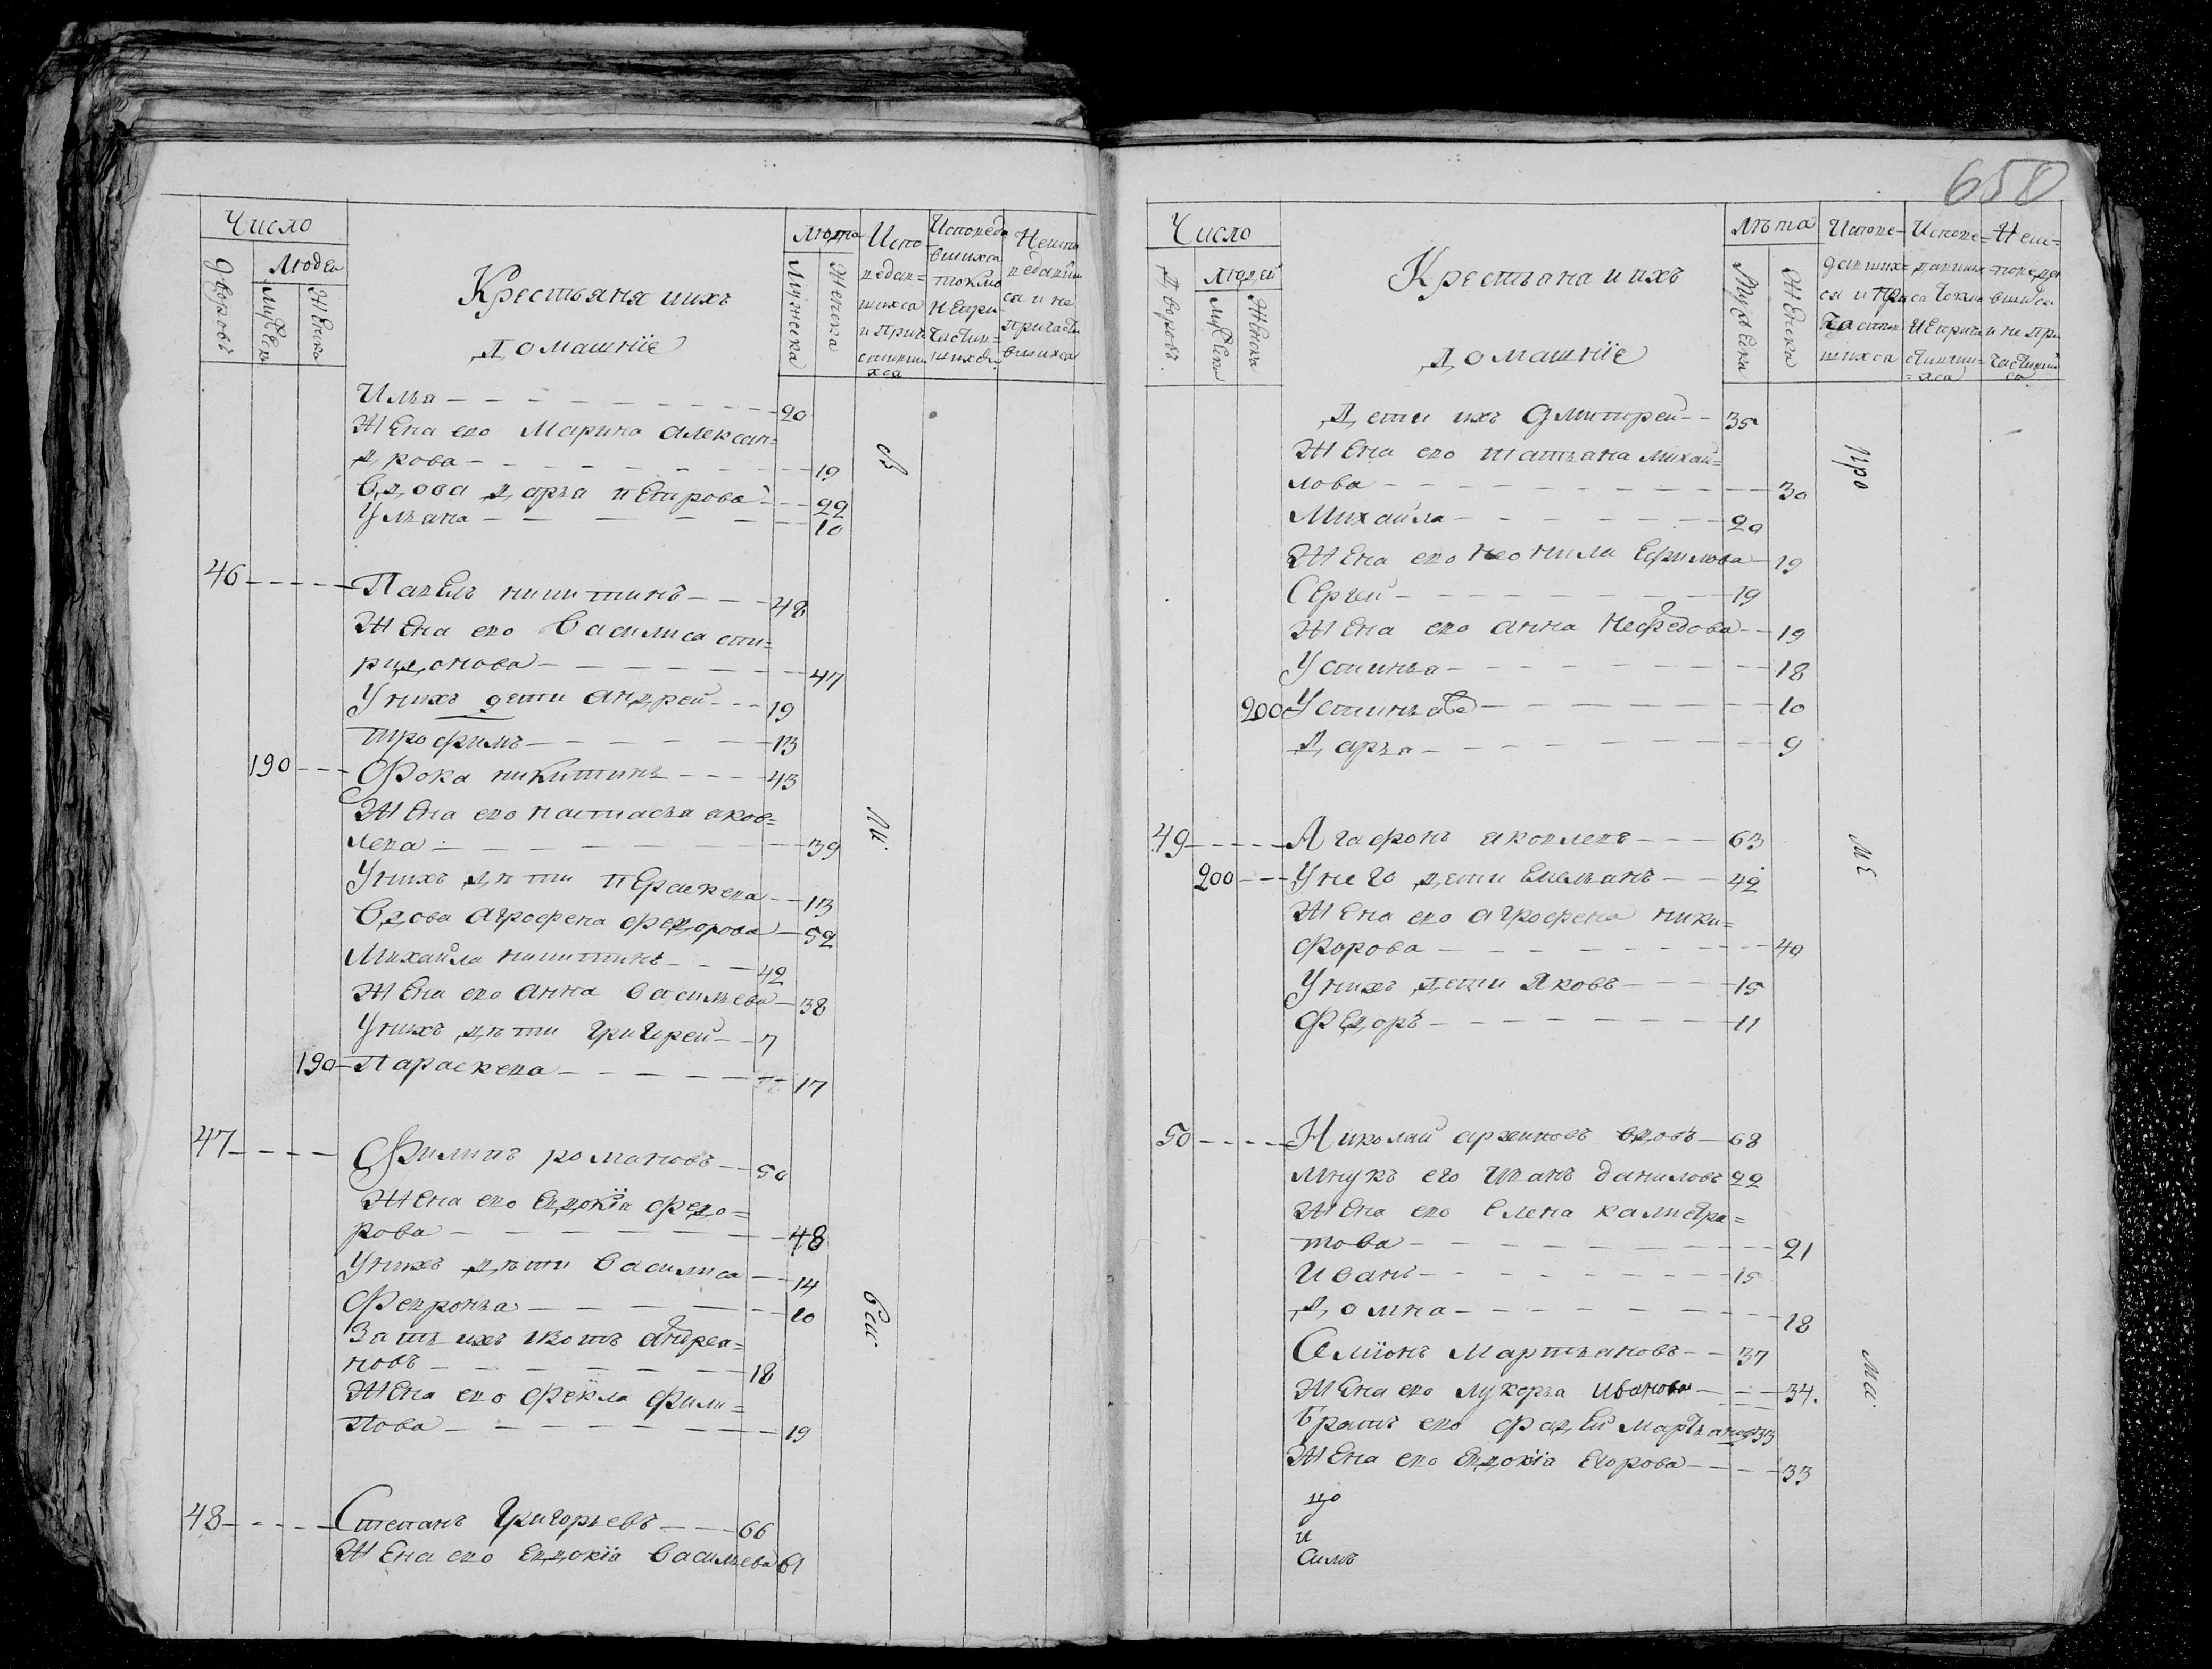 Число
Крестьяня ихъ
домашніе
дворовъ
Людей
Муска
Женска
Лѣта
Мужеска
Женска
Испо
ведав=
шихса
и Прич
стивши
хса
Исповеда
вшихса
токмо
Непри
частив=
шихся
Неиспо
ведавши
ся и не
причасти
вшихса
Илья — 20
Жена ево Марина Алексан=
дрова — 19
Вдова Дарья петрова — 22
Ульяна — 10
46 — Павелъ никитинъ — 48
Жена ево Василиса спи=
ридонова — 47
Унихъ дети Андрей — 19
трофимъ — 13
190 — Фока никитинъ — 43
Жена ево настасья яков=
лева — 39
Унихъ дѣти пераскева — 13
Вдова Агрофена федорова — 52
Михайла никитинъ — 42
Жена ево анна васильева — 38
Унихъ дѣти григорей — 7
190 — Параскева — 17
47 — Филипъ романовъ — 50
Жена ево Евдокія федо=
рова — 48
Унихъ дѣти Василиса — 14
Февронья — 10
Зять ихъ изотъ андреа=
новъ — 18
Жена ево фекла фили=
пова — 19
48 — Степанъ Григорьевъ — 66
Жена ево Евдокія Васильева 61
св
ли.
веи.
650
Число
Крестьяна и ихъ
домашніе
Дворовъ.
людей
Муска
Женска
лѣта
Мужеска
Женска
Испове-
давших=
ся и При
частив
шихса
Испове=
давших
са токмо
неприча
стивши=
хса
Неис=
поведа
вшихса
и не при
частивши
са
Дети ихъ Дмитрей — 35
Жена ево татьана михай=
лова — 30
Михайла — 20
Жена ево неонила Ефимова — 19
Сергей — 19
Жена ево анна нефедова — 19
Устинья — 18
200 Устинья — 10
Дарья — 9
49 — Агафонъ яковлевъ — 63
200 — Унего дети емельанъ — 42
Жена ево агрофена ники=
форова — 40
Унихъ дети Яковъ — 15
Федоръ — 11
50 — Николай архиповъ вдовъ — 68
Мнукъ его Иванъ даниловъ 22
Жена ево елена калистра=
това — 21
Иванъ — 15
Домна — 18
Семіонъ Мартьановъ — 37
Жена ево лукерья иванова — 34.
Братъ ево фадей Мартьановъ 33
Жена ево Евдокіа Егорова — 33
що
и
симъ
Про
ме
ма.